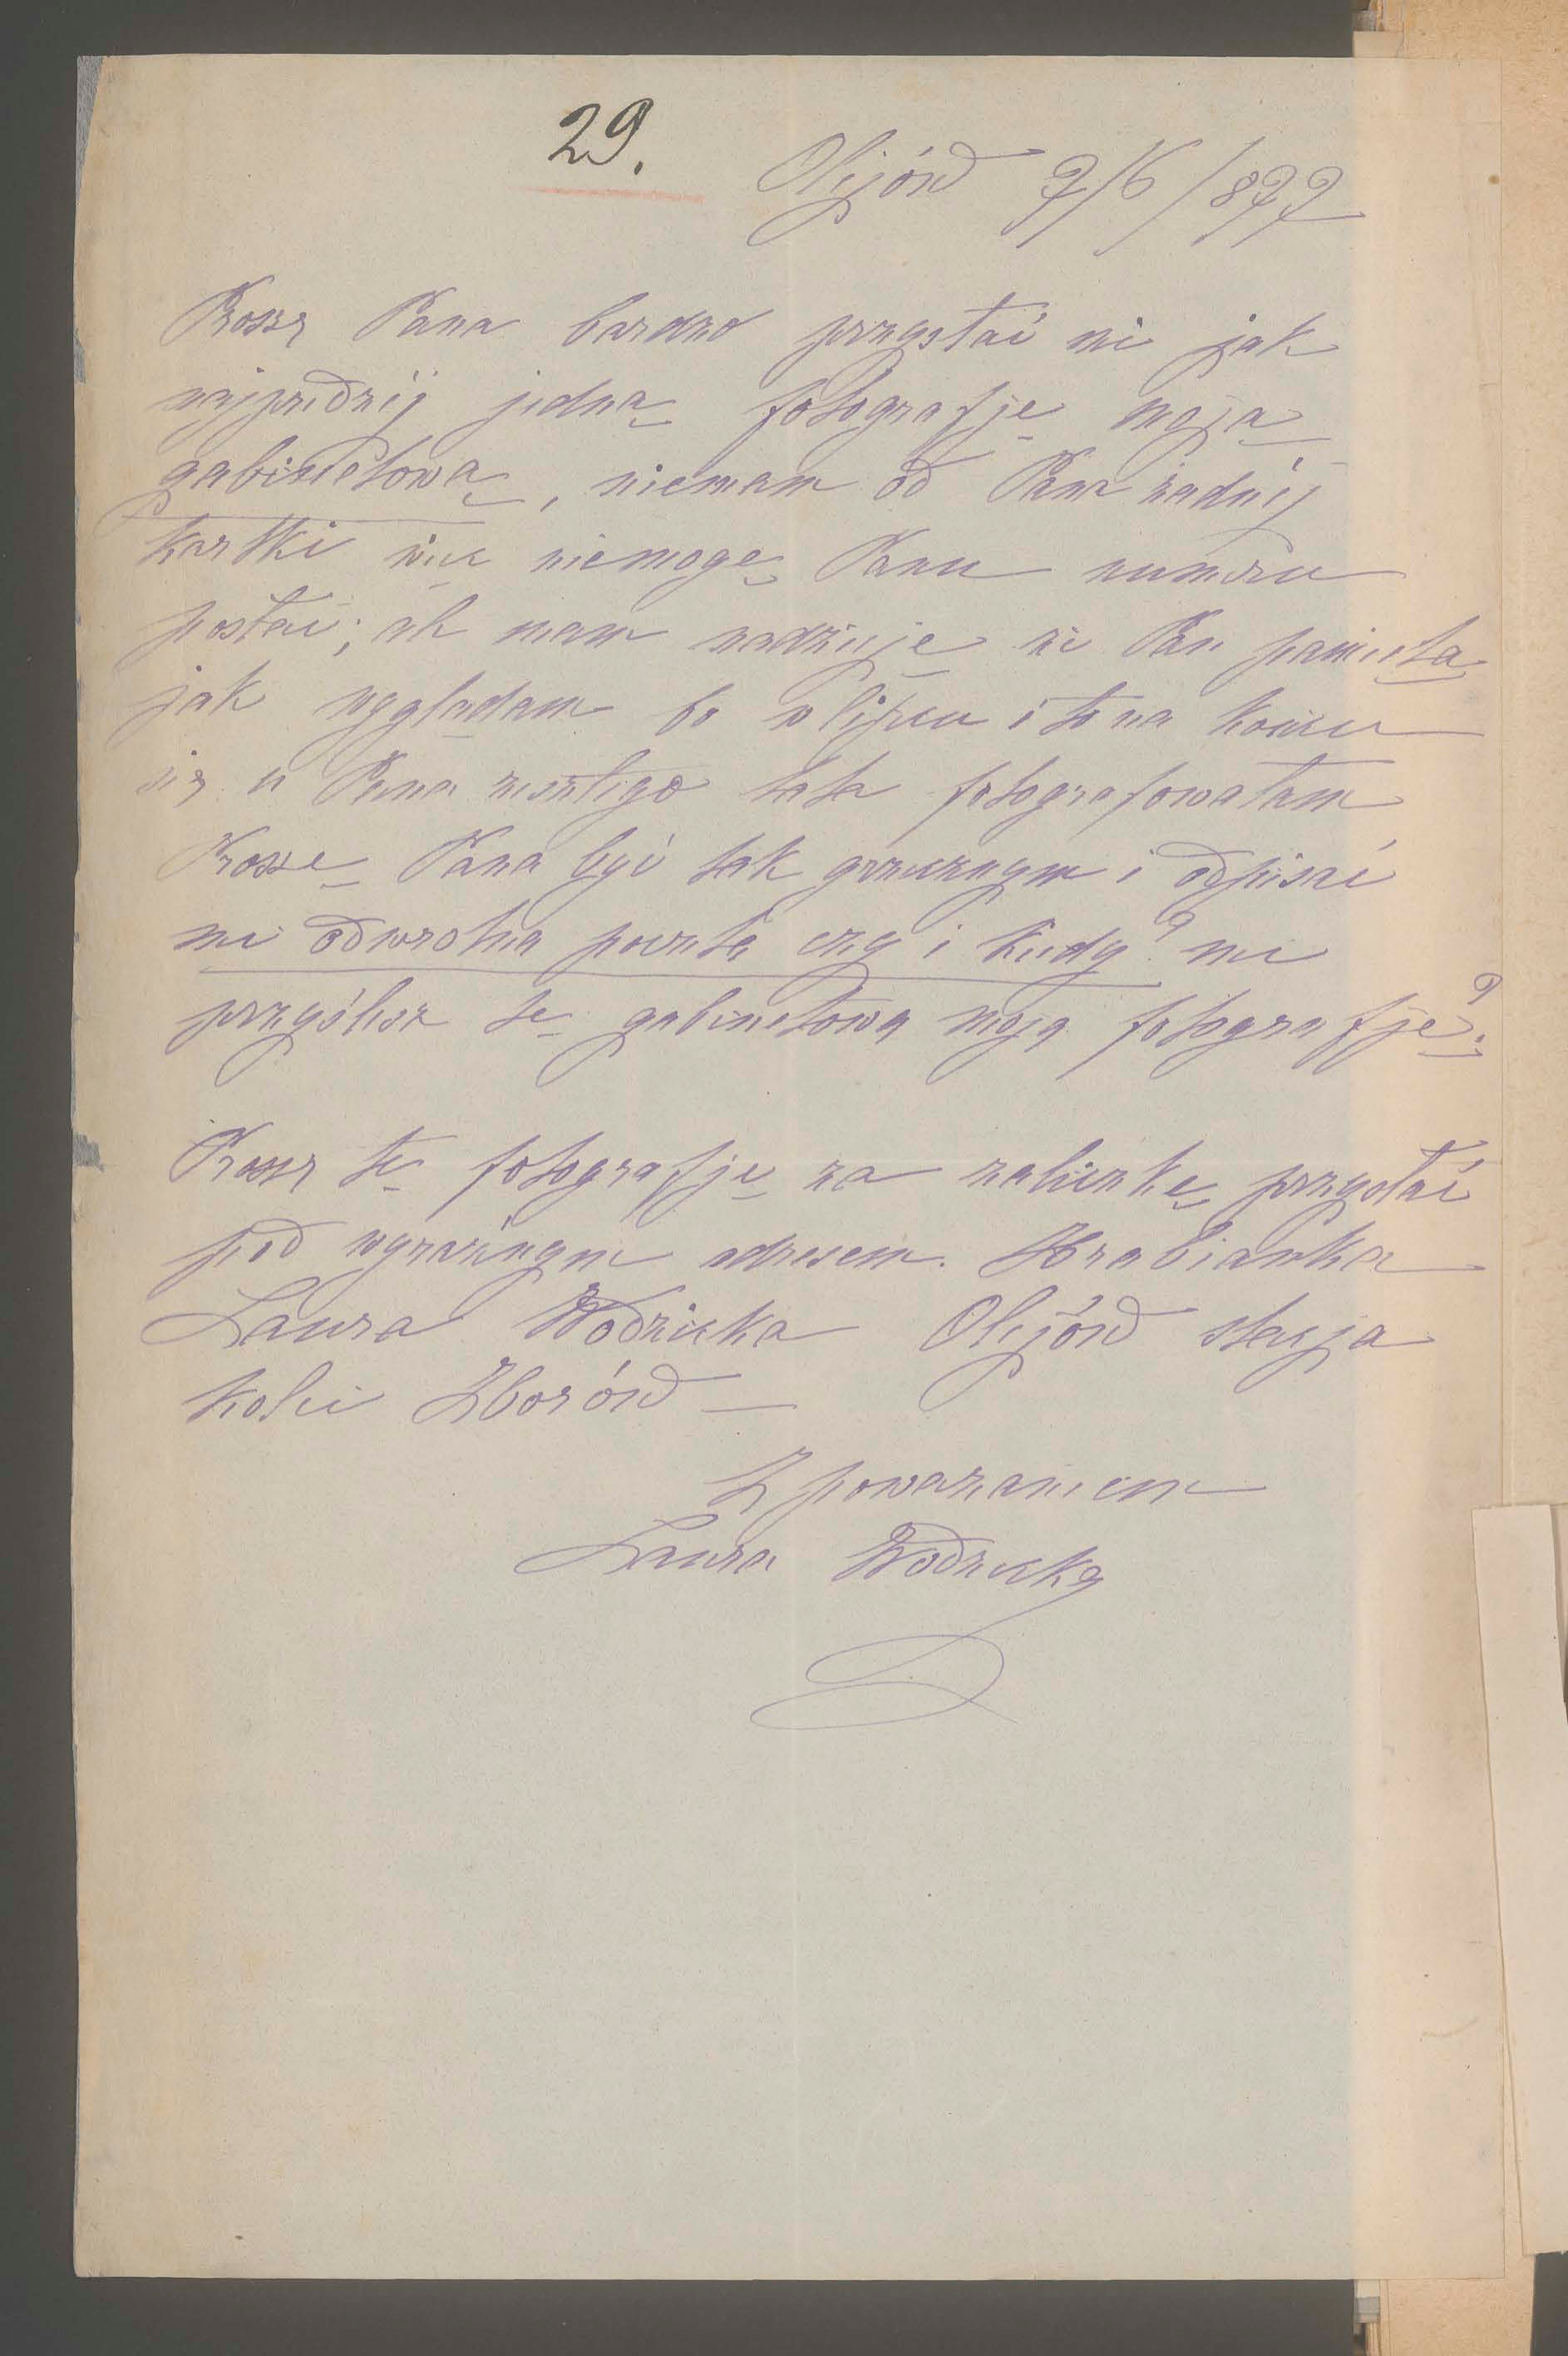 29.
Olejów 7/6/877
Prosze Pana bardzo przysłać mi jak
najprędzéj jedną fotografję moją
gabinetową, niemam od Pana żadnéj
kartki więc niemogę Panu numeru
posłać; ale mam nadzieję że Pan pamięta
jak wyglądam bo w lipcu i to na końcu
się u Pana zeszłego lata fotografowałam
Proszę Pana być tak grzecznym i odpisać
mi odwrotną pocztą czy i kiedy? mi
przyślesz tę gabinetową moją fotografję?
Prosze tę fotografję za zaliczkę przysłać
pod wyraźnym adresem. Hrabianka
Laura Wodzicka Olejów stacja
kolei Zborów —
Z poważaniem
Laura Wodzicka